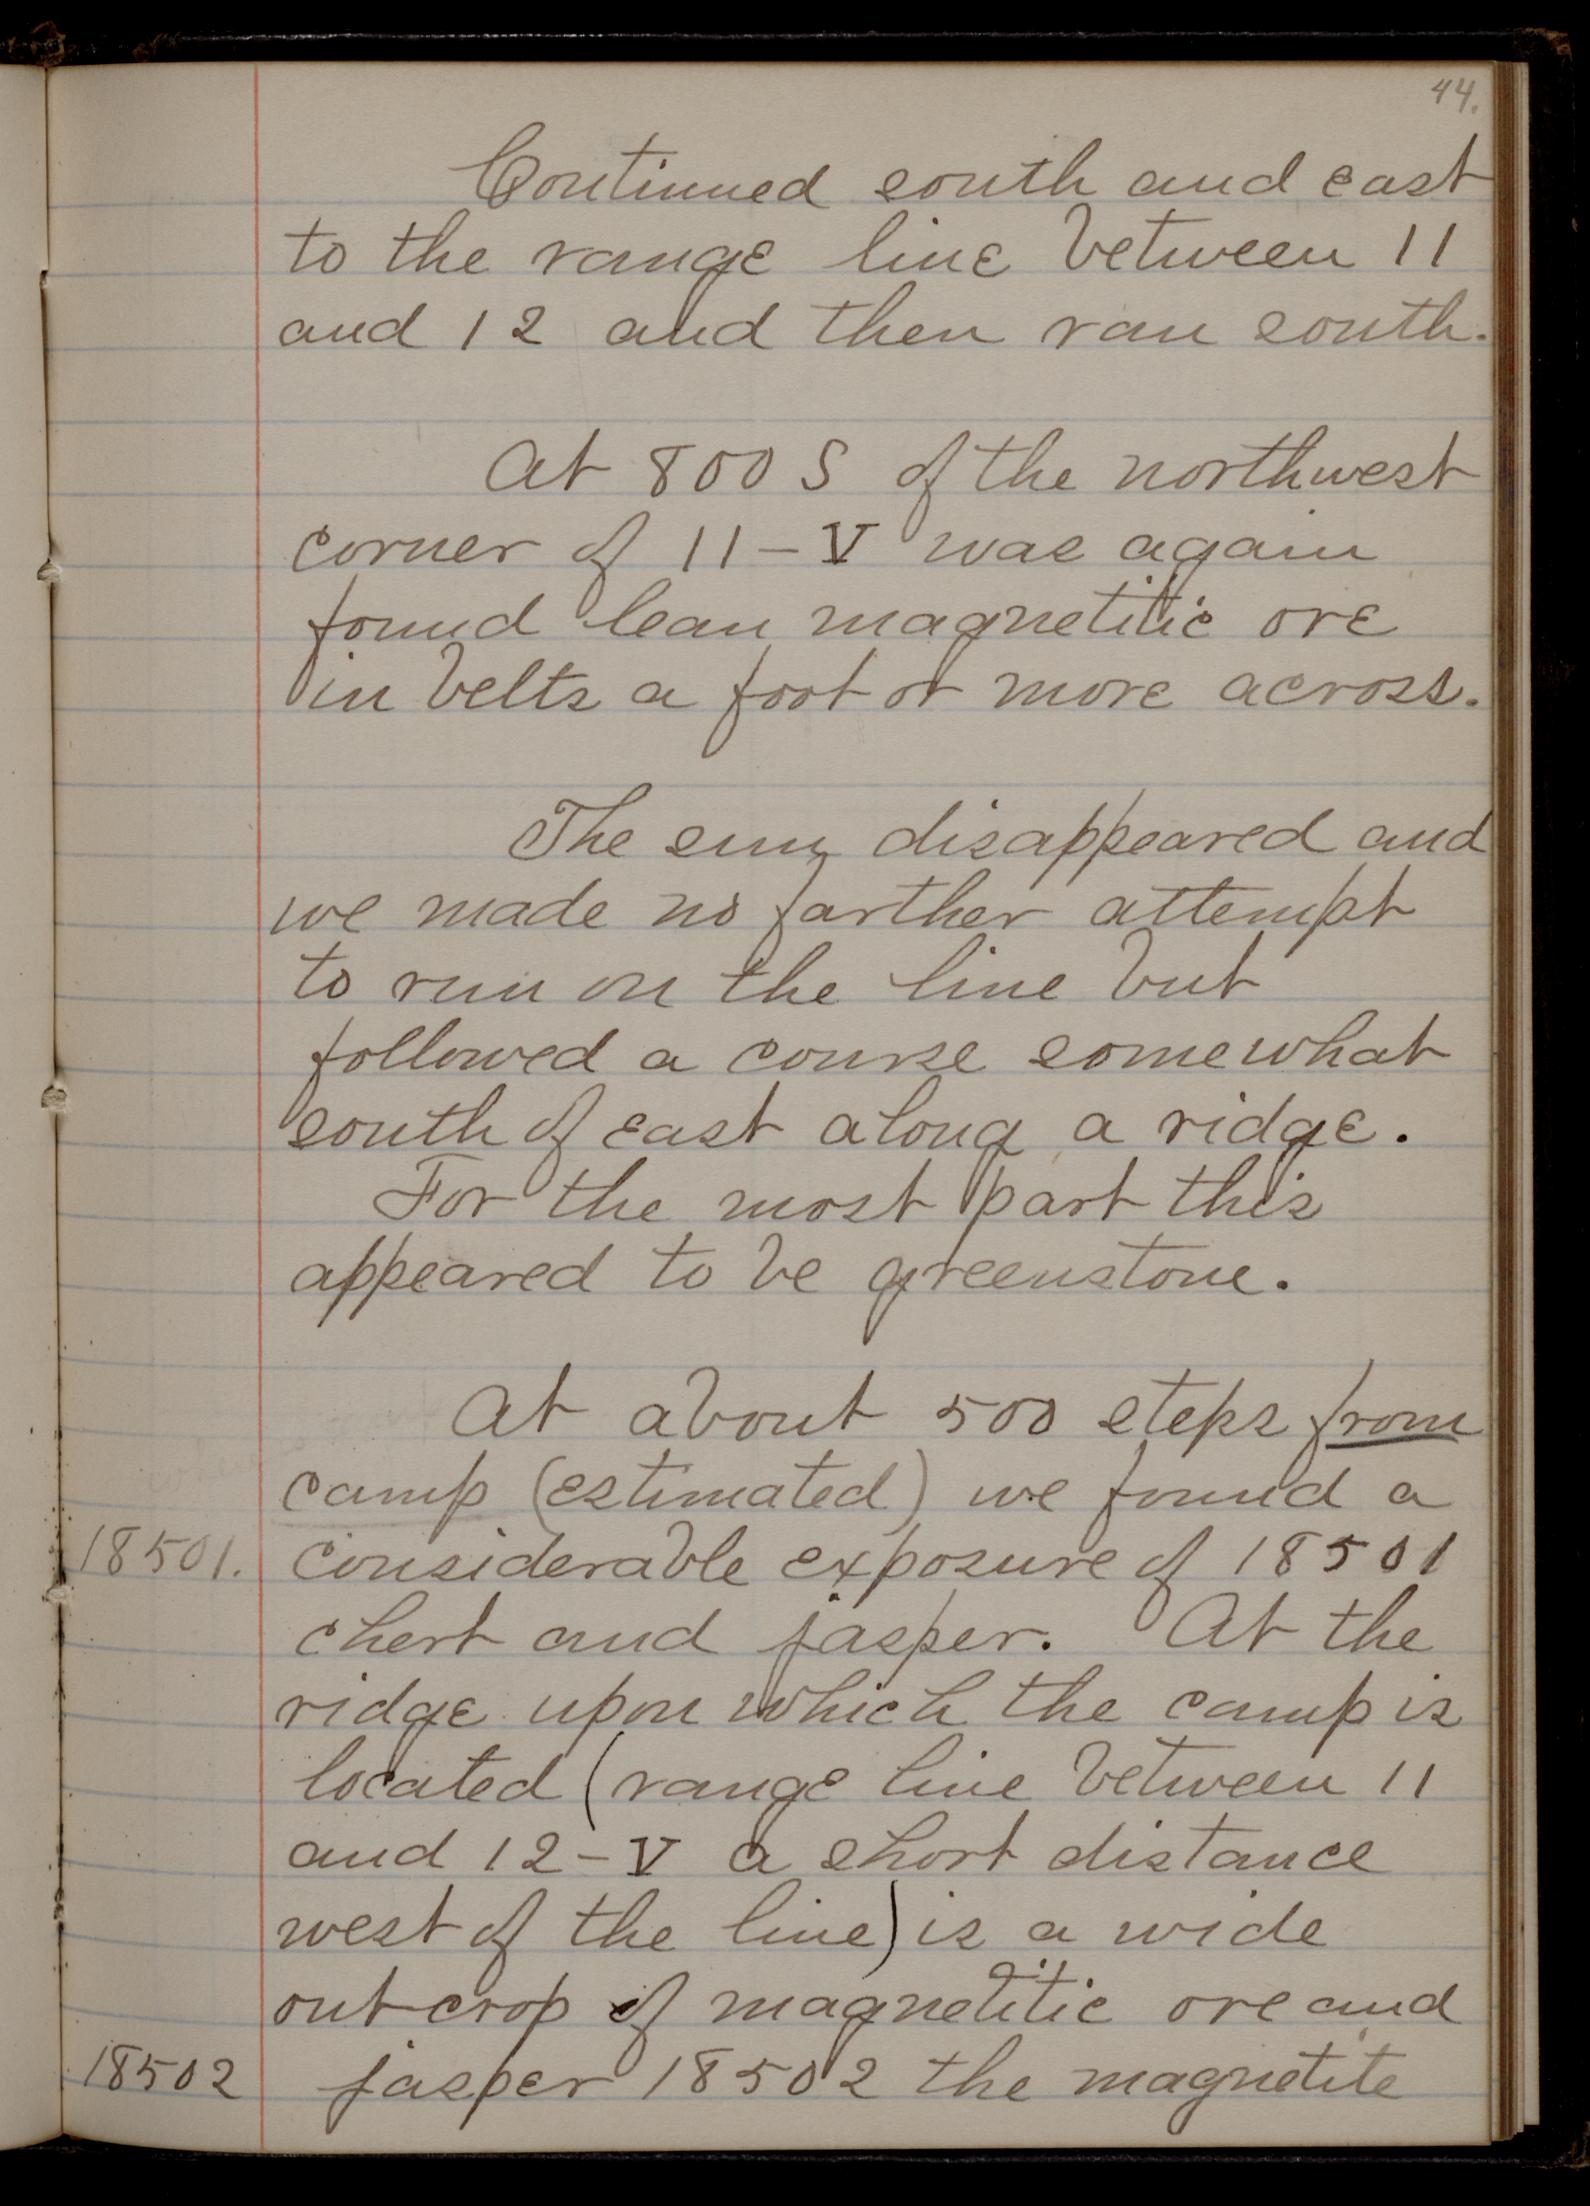 44.
Continued south and east
to the range line between 11
and 12 and then ran south.
At 800 S of the northwest
corner of 11-V was again
found lean magnetitic ore
in belts a foot or more across.
The sun disappeared and
we made no farther attempt
to run on the line but
followed a course somewhat
south of east along a ridge.
For the most part this
appeared to be greenstone.
At about 500 steps from
camp (estimated) we found a
18501. considerable exposure of 18501
chert and jasper. At the
ridge upon which the camp is
located (range line between 11
and 12-V a short distance
west of the line) is a wide
outcrop of magnetitic ore and
18502 jasper 18502 the magnetite